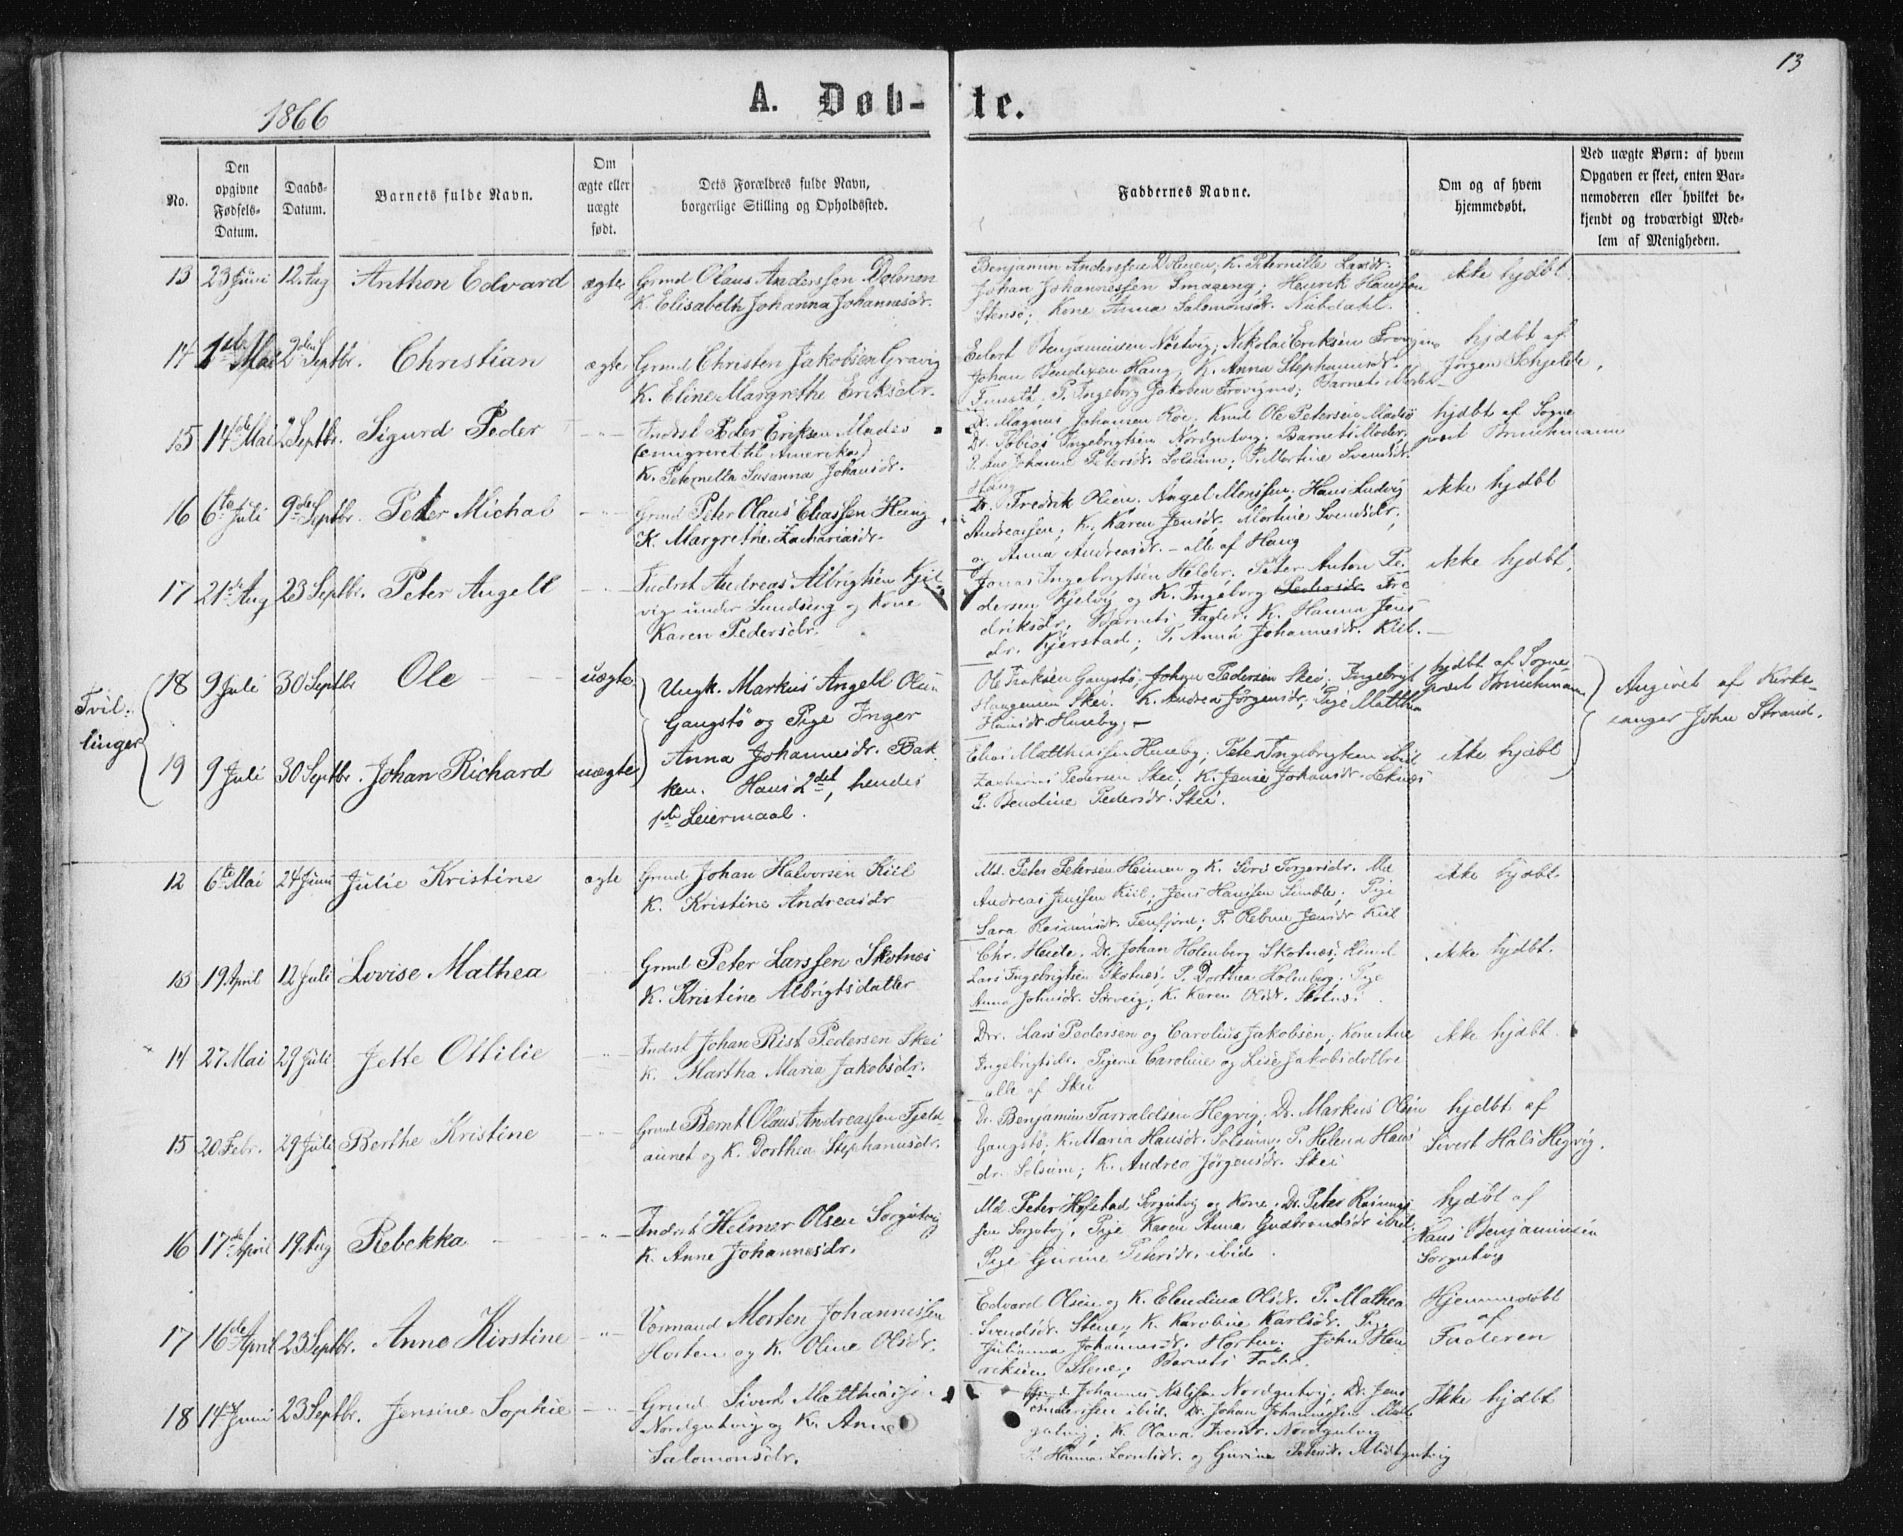 13
1866
A. Døb-te.
No.
Den opgivne Fødsels-Datum.
Daabs-Datum.
Barnets fulde Navn.
Om ægte eller uægte født.
Dets Forældres fulde Navn,
borgerlige Stilling og Opholdssted.
Faddernes Navne.
Om og af hvem
hjemmedøbt.
Ved uægte Børn: af hvem
Opgaven er skeet, enten Bar-
nemoderen eller hvilket be-
kjendt og troværdigt Med-
lem af Menigheden.
13 23 Juni 12 Aug Anthon Edvard ægte Grmd Olaus Anderssen Dolmen
K. Elisabeth Johanna Johannesdr.
Benjamin Anderssen Dolmen, K. Peternille Larsdr.
Johan Johannessen; Henrik Hanssen
Stensø; Kone Anna Salomonsdr.
ikke hjdbt.
14 1ste Mai 2den Septbr. Christian ægte Grmd Christen Jakobsen Gravig
K. Eline Margrethe Eriksdr.
Benjaminsen; Nikolai Eriksen
Johan Bendixen Haug, K. Anna Stephansdr.
P. Ingeborg Jakobsen; Barnets Moder
hjdbt af
Jørgen Schjelde.
15 14de Mai 2 Septbr. Sigurd Peder Indrst Peder Eriksen
(emigreret til Amerika)
K. Peternella Susanna Johansdr.
Dr. Magnus Johansen; Ole Petersen
Dr. Tobias Ingebrigtsen Nordgutvig. Barnets Moder,
Johanna Petersdr. Solsem; P. Martine Svendsdr.
Haug
hjdbt af Sogne
præst Brinchmann
16 6te Juli 9de Septbr. Peter Michal Grmd Peter Olaus Eliassen Haug
K. Margrethe Zachariasdr.
Dr. Fredrik Olsen, Angel Monssen, Hans Ludvig
Andreassen; K. Karen Jensdr. Martine Svendsdr.
og Anna Andreasdr. - alle af Haug
ikke hjdbt
17 21de Aug 23 Septbr. Peter Angell Indrst Andreas Albrigtsen Kjel-
vig under Lundseng og Kone
Karen Pedersdr.
Jonas Ingebrigtsen Helder. Peter Anton Pe-
dersen Kjelvig og K. Ingeborg Fre
driksdr, Barnets Fader. K. Hanna Jens
dr. Kjerstad; P. Anna Johannesdr. Kiil.
ikke hjdbt.
Tvil-
linger
18 9 Juli 30 Septbr Ole uægte
Ungk. Markus Angell Olsen
Gangstø og Pige Inger
Anna Johannesdr. Bak
ken. Hans 2det, hendes
1ste Leiermaal.
Ole Isaksen Gangstø; Johan Pedersen Skei, Ingebrigt
Haagensen Skei. K. Andrea Jørgensdr, Pige Matthea
Hansdr Huseby.
hjdbt af Sogne-
præst Brinchmann
Angivet af Kirke-
sanger John Strand.
19 9 Juli 30 Septbr. Johan Richard uægte
Elias Matthiassen Huseby; Peter Ingebrigtsen ibid
Zacharias Pedersen Skei; K. Jensie Johansdr. Leknes
P. Bendine Pedersdr. Skei.
ikke hjdbt
12 6te Mai 24 Juni Julie Kristine ægte Grmd Johan Halvorsen Kiil
K. Kristine Andreasdr
Md. Peter Petersen Heimen og K. Siri Torgersdr. Md
Andreas Jenssen Kiil; Jens Hanssen Simble, Pige
Sara Rasmusdr. Tenfjord; P. Jensdr Kiil
ikke hjdbt.
13 19 April 12 Juli Lovise Mathea Grmd Peter Larssen Skotnes
K. Kristine Albrigtsdatter
Chr. Heide, Dr. Johan Holmberg Skotnes,
Lars Ingebrigtsen Skotnes, P. Dorthea Holmberg, Pige
Anna Johnsdr. Sørveig, K. Karen Olsdr. Skotnes.
ikke hjdbt.
14 27 Mai 29 Juli Jette Ottilie Indrst Johan Rist Pedersen Skei
K. Martha Maria Jakobsdr.
Drr. Lars Pedersen og Carolius Jakobsen, Kone Ane
Ingebrigtsdr. Pigerne Caroline og Lise Jakobsdøttre
alle af Skei
ikke hjdbt.
15 20 Febr. 29 Juli Berthe Kristine Grmd Bernt Olaus Andreassen Fjeld-
aunet og K. Dorthea Stephansdr.
Dr. Benjamin Tarraldsen Hegvig, Dr. Markus Olsen
Gangstø, K. Maria Hansdr. Solsem, P. Helena Hans
dr. Solsem; K. Andrea Jørgensdr. Skei
hjdbt af
Sivert Hals Hegvig.
16 17de April 19 Aug Rebekka Indrst Heimer Olsen Sørgutvig
K. Anne Johannesdr.
Md Peter Hofstad Sørgutvig og Kone, Dr. Peter Rasmus
sen Sørgutvig, Pige Karen Anna Gudbrandsdr ibid,
Pige Gurine Petersdr. ibid.
hjdbt af
Hans Benjaminsen
Sørgutvig
17 16de April 23 Septbr. Anne Kirstine Formand Morten Johannessen
Horten og K. Oline Olsdr.
Edvard Olsen og K. Elendina Olsdr. P. Mathea
Svendsdr. Stene, K. Karoline Karlsdr. Pige
Julianna Johannesdr. Horten. John Hen
riksen Stene, Barnets Fader.
Hjemmedøbt
af
Faderen
18 14 Juni 23 Septbr. Jensine Sophie Grmd Sivert Matthiassen
Nordgutvig og K. Anne
Salomonsdr.
Grmd Johannes Nordgutvig, Dr. Jens
ibid. Dr. Johan Johannessen
K. Olava Iversdr. Nordgutvig
P. Hanna og Gurine Petersdr. Midtgutvig
Ikke hjdbt